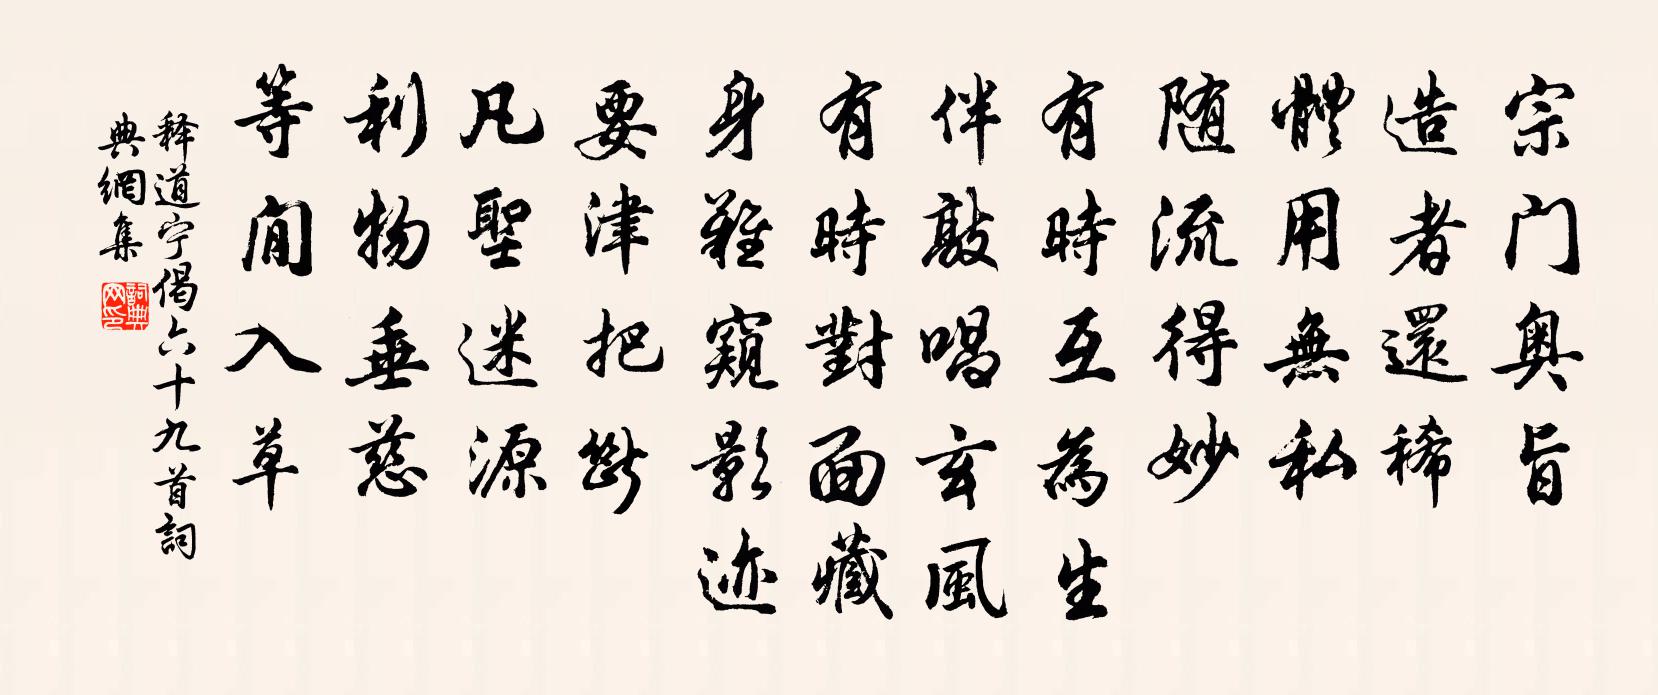 宗门奥旨
造者還稀
體用無私
随流得妙
有時互為生
伴敲唱玄風
有時對面藏
身難窺影迹
要津把斷
凡聖迷源
利物垂慈
等閒入草
释道宁偈六十九首詞
典網集
詞典
网印